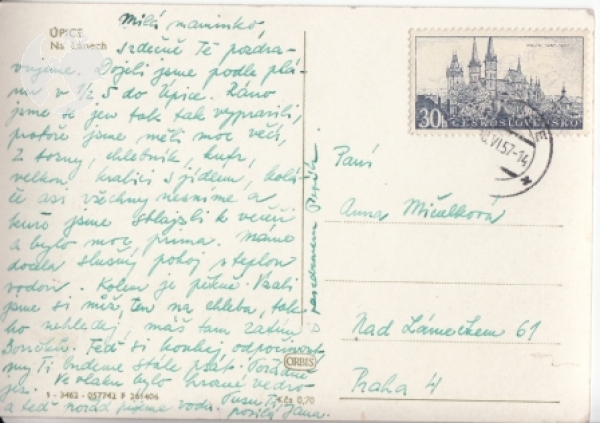 ÚPICE
Na Lánech
Milá maminko,
srdečně Tě pozdra-
vujeme. Dojeli jsme podle plá-
nu v ½ 5 do Úpice. Ráno
jsme se jen tak tak vypravili,
protože jsme měli moc věcí,
2 torny, chlebník, kufr,
velkou krabici s jídlem, kolá-
če asi všechny nesníme a
kuře jsme sblajzli k večeři
a bylo moc prima. Máme
docela slušný pokoj s teplou
vodou. Kolem je pěkně. Vzali
jsme si nůž, ten na chleba, tak
ho nehledej, máš tam zatím
Teď si koukej odpočinout
my Ti budeme stále psát.
jez. Ve vlaku bylo hrozné vedro
a teď pořád pijeme vodu. Pusu Ti
posílá Jana.
1 - 3462 - 057742 F 261406
ORBIS
Kčs 0,70
s pozdravem
30h
ČESKOSLOVENSKO
VI.57-14
Paní
Anna Mičulková
Nad Zámečkem 61
Praha 4